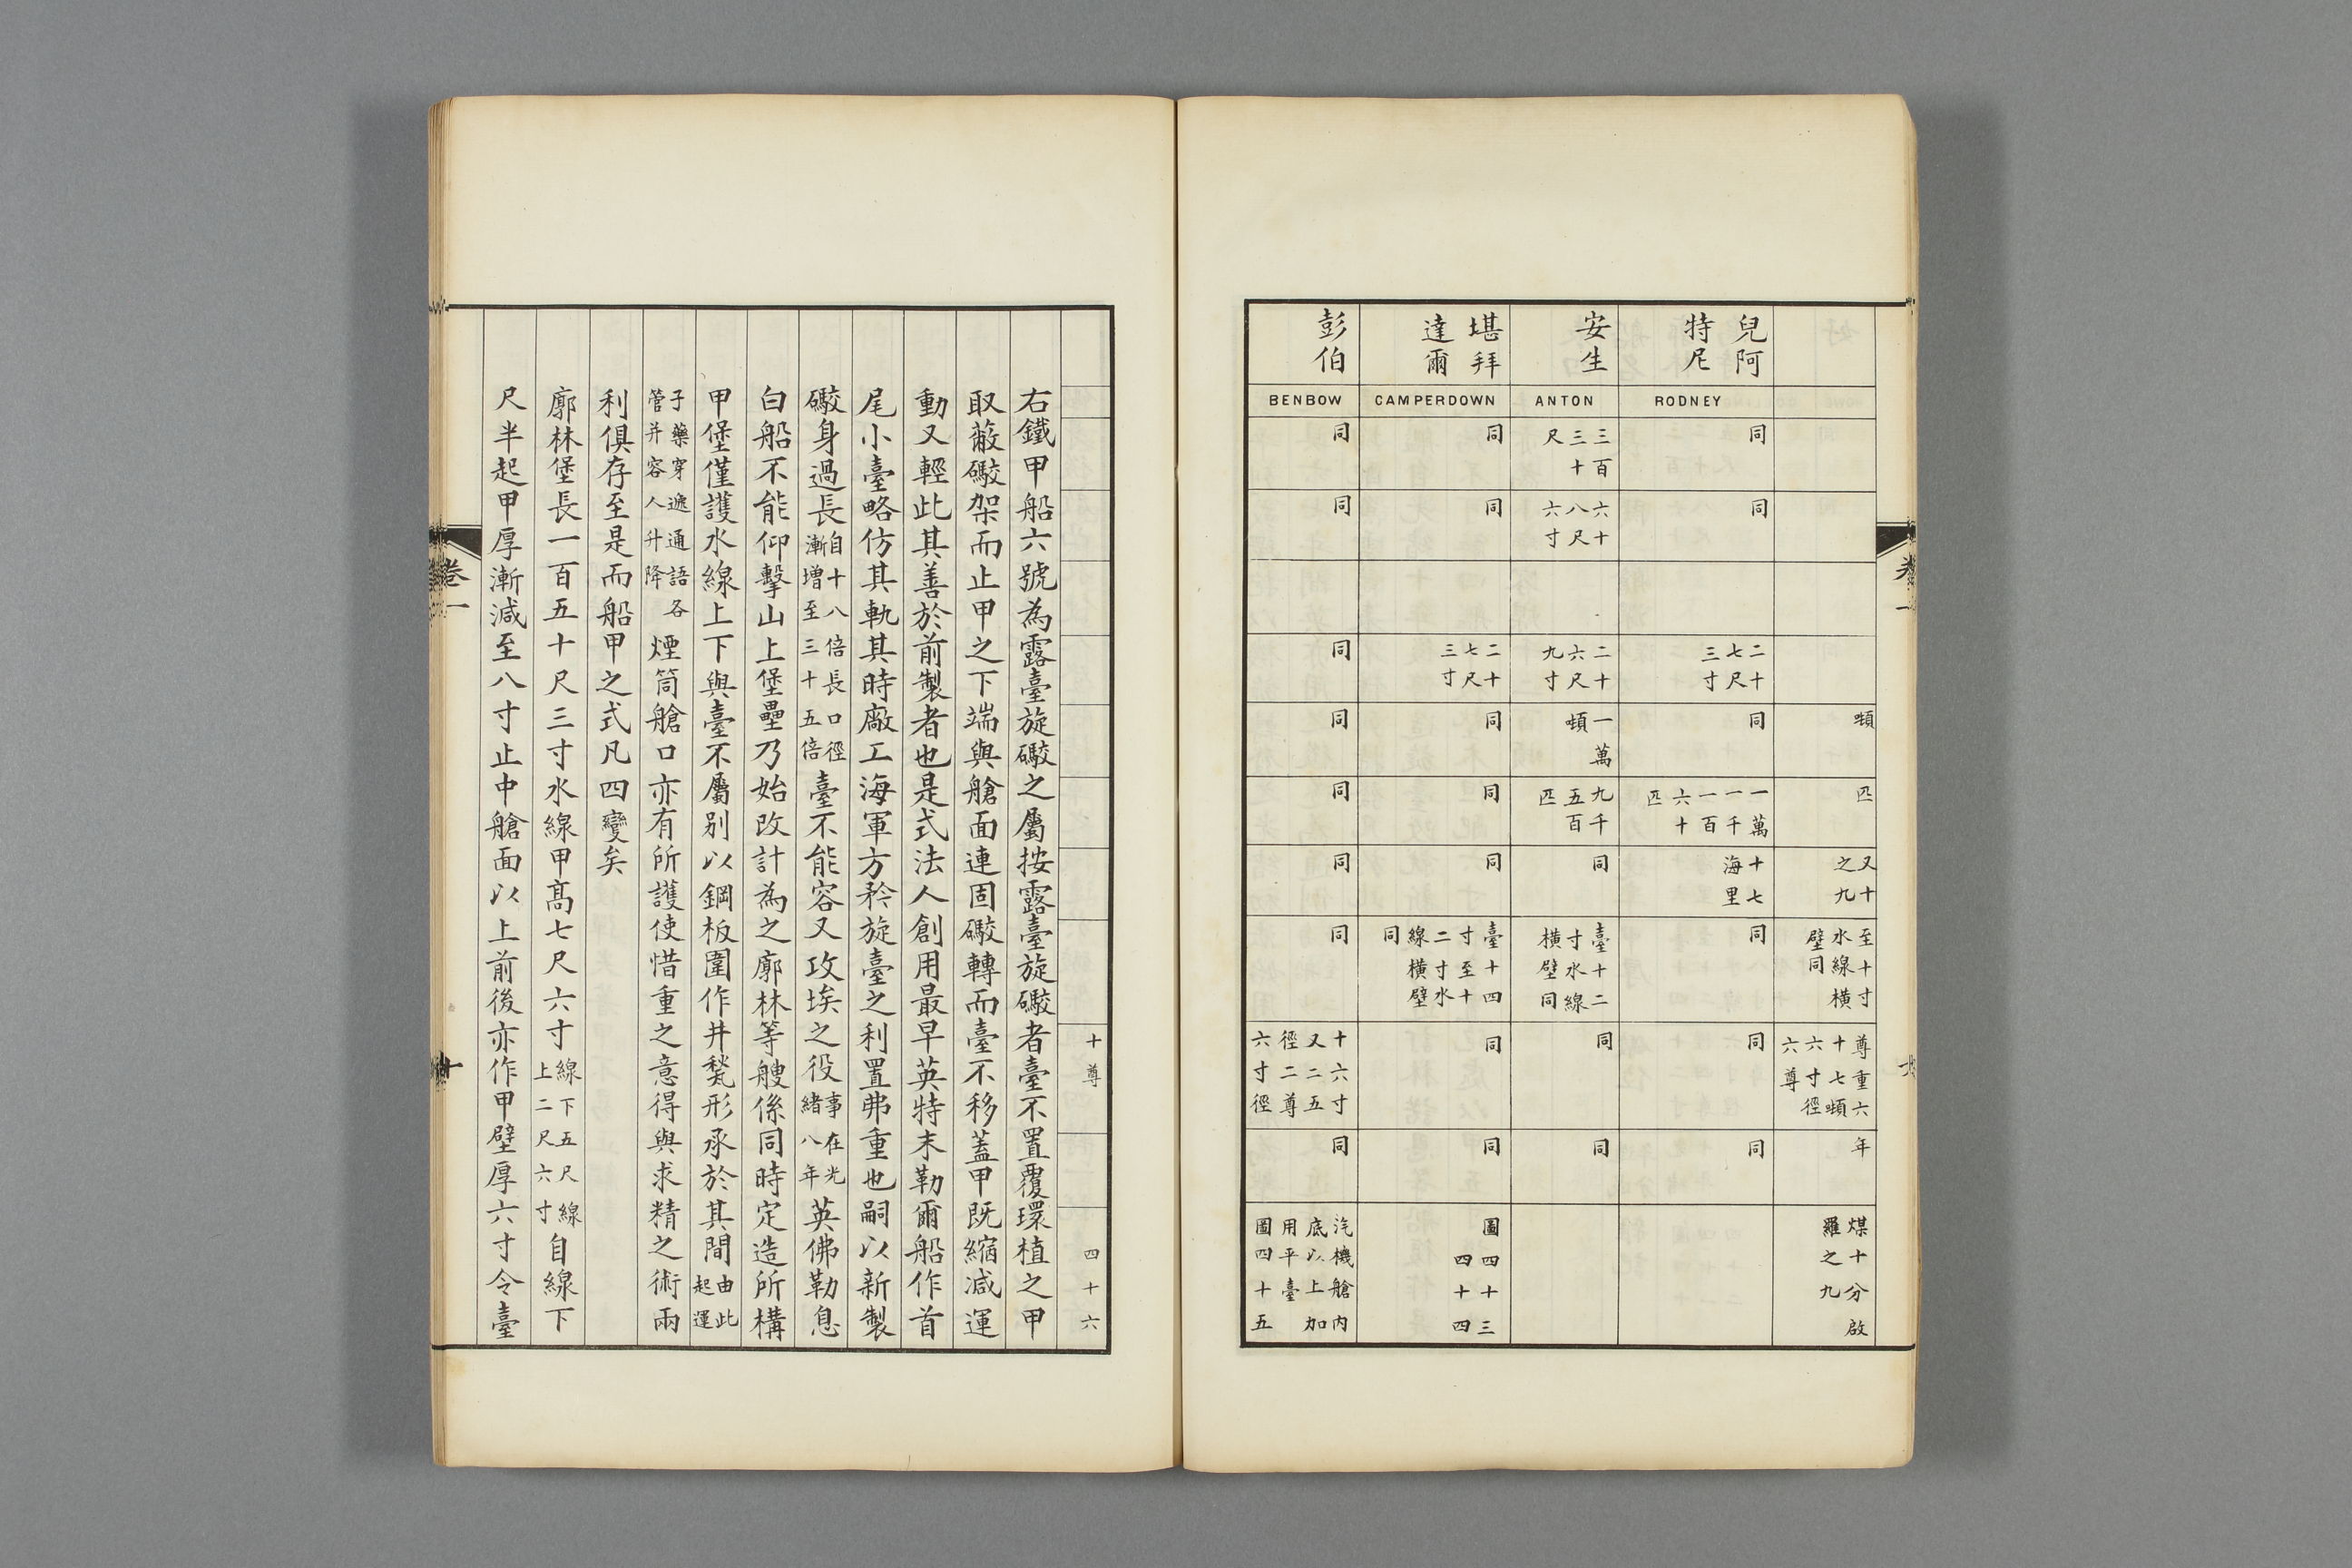 噸
匹
又十
之九
至十寸
水線橫
壁同
尊重六
十七噸
六寸徑
六尊
年
煤十分啟
羅之九
兒阿
特尼
RODNEY
同
同
二十
七尺
三寸
同
一萬
一千
一百
六十
匹
十七
海里
同
同
同
安生
ANTON
三百
三十
尺
六十
八尺
六寸
二十
六尺
九寸
一萬
噸
九千
五百
匹
同
臺十二
寸水線
橫壁同
同
同
堪拜
達爾
CAMPERDOWN
同
同
二十
七尺
三寸
同
同
同
臺十四
寸至十
二寸水
線橫壁
同
同
同
圖四十三
四十四
彭伯
BENBOW
同
同
同
同
同
同
同
十六寸
又二五
徑二尊
六寸徑
同
汽機艙內
底以上加
用平臺
圖四十五
卷一
十尊
四十六
右鐵甲船六號為露臺旋礮之屬按露臺旋礮者臺不置覆環植之甲
取蔽礮架而止甲之下端與艙面連固礮轉而臺不移蓋甲既縮減運
動又輕此其善於前製者也是式法人創用最早英特末勒爾船作首
尾小臺略仿其軌其時廠工海軍方矜旋臺之利置弗重也嗣以新製
礮身過長自十八倍長口徑漸增至三十五倍臺不能容又攻埃之役事在光緒八年英佛勒息
白船不能仰擊山上堡壘乃始改計為之廓林等艘係同時定造所構
甲堡僅護水線上下與臺不屬別以鋼板圍作井甃形承於其間由此起運
子藥穿遞通語各管并容人升降煙筒艙口亦有所護使惜重之意得與求精之術兩
利俱存至是而船甲之式凡四變矣
廓林堡長一百五十尺三寸水線甲高七尺六寸線下五尺線上二尺六寸自線下
尺半起甲厚漸減至八寸止中艙面以上前後亦作甲壁厚六寸令臺
卷一